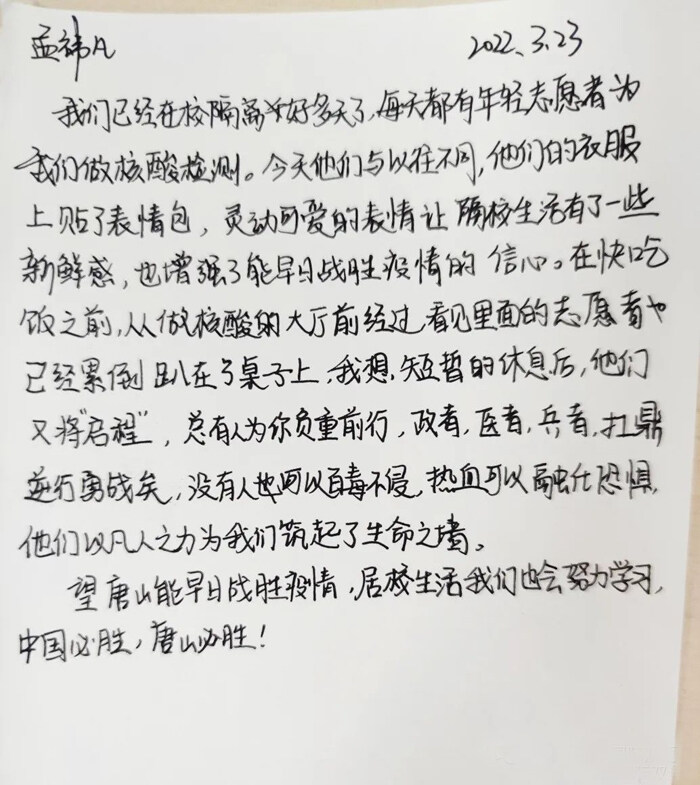 孟祎凡 2022.3.23
我们已经在校隔离好多天了,每天都有年轻志愿者为
我们做核酸检测。今天他们与以往不同,他们的衣服
上贴了表情包,灵动可爱的表情让隔校生活有了一些
新鲜感,也增强了能早日战胜疫情的信心。在快吃
饭之前,从做核酸的大厅前经过,看见里面的志愿者也
已经累倒趴在了桌子上,我想,短暂的休息后,他们
又将“启程”,总有人为你负重前行,政者,医者,兵者,扛鼎
逆行勇战矣,没有人也可以百毒不侵,热血可以融化恐惧,
他们以凡人之力为我们筑起了生命之墙。
望唐山能早日战胜疫情,居校生活我们也会努力学习,
中国必胜,唐山必胜!